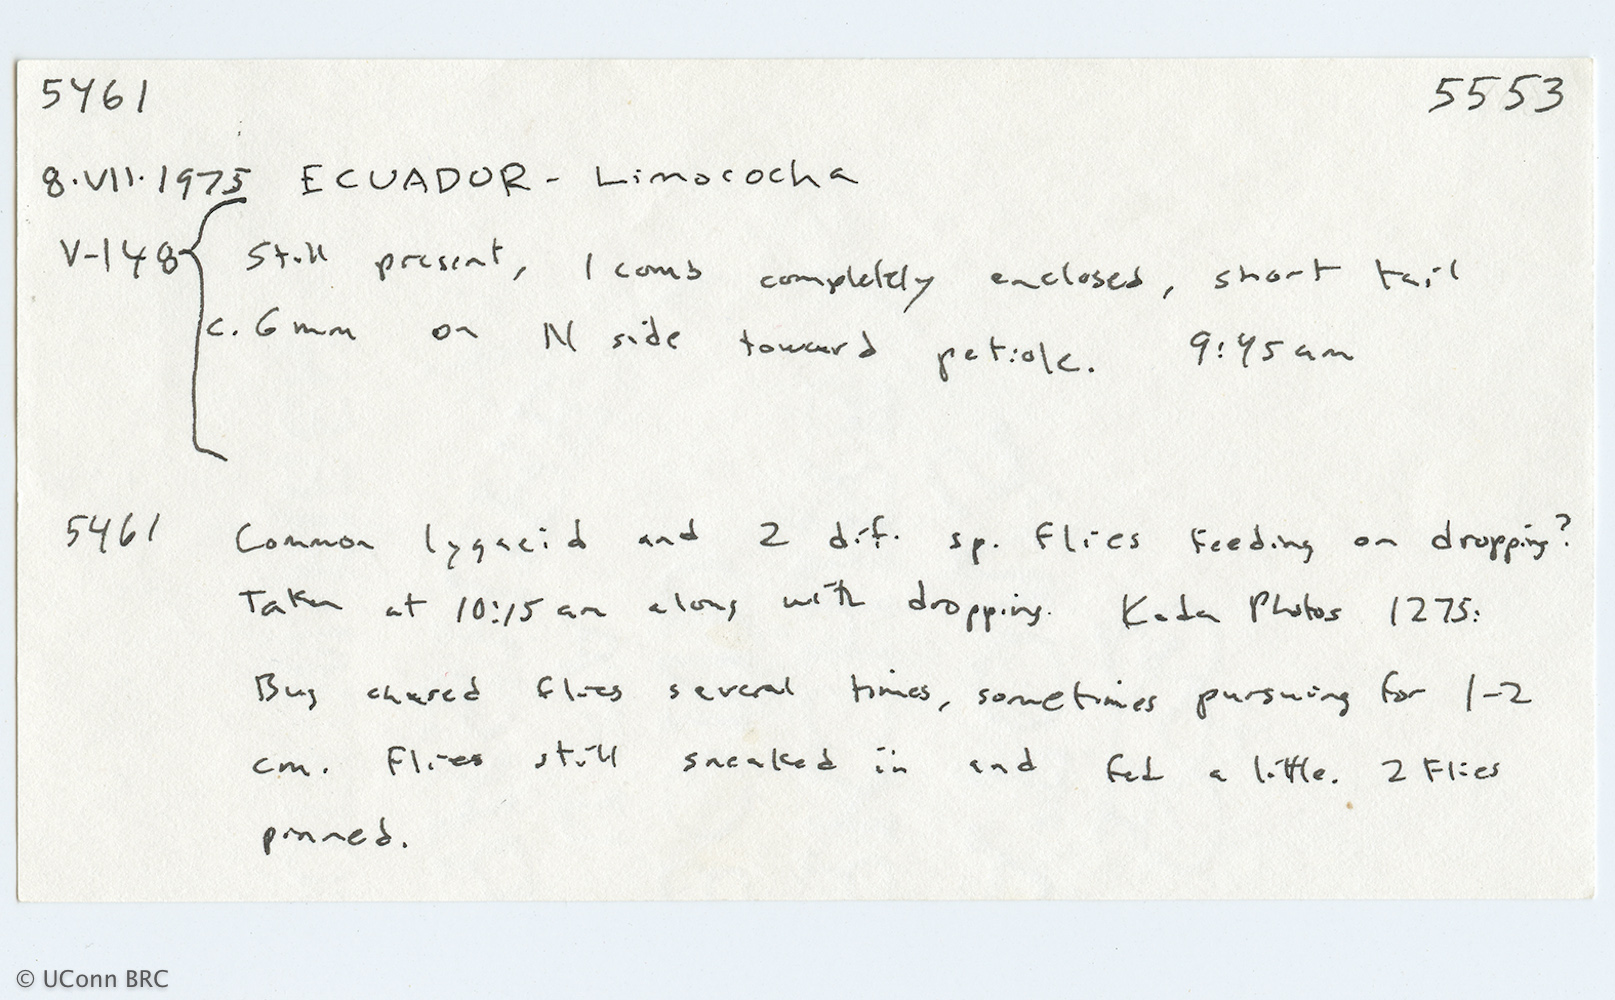 5461 5553
8.VII.1975 ECUADOR - Limococha
V-148 Still present, 1 comb completely enclosed, short tail
c. 6mm on N side toward petiole. 9:45 am
5461 Common lygaeid and 2 dif. sp. flies feeding on dropping?
Taken at 10:15 am along with dropping. Koda Photos 1275:
Bug chased flies several times, sometimes pursuing for 1-2
cm. Flies still sneaked in and fed a little. 2 Flies
pinned.
© UConn BRC